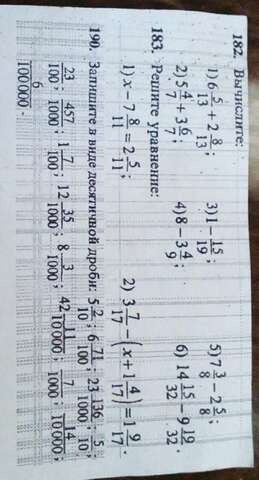 182. Вычислите:
1) 6 5/13 + 2 8/13; 3) 1 − 15/19; 5) 7 3/8 − 2 5/8;
2) 5 4/7 + 3 6/7; 4) 8 − 3 4/9; 6) 14 15/32 − 9 19/32.
183. Решите уравнение:
1) x − 7 8/11 = 2 5/11; 2) 3 7/17 − (x + 1 4/17) = 1 9/17.
190. Запишите в виде десятичной дроби: 5 2/10; 6 71/100; 23 136/1000; 5/10;
23/100; 457/1000; 1 7/100; 12 35/1000; 8 3/1000; 42 11/10 000; 7/1000; 14/10 000;
6/100 000.